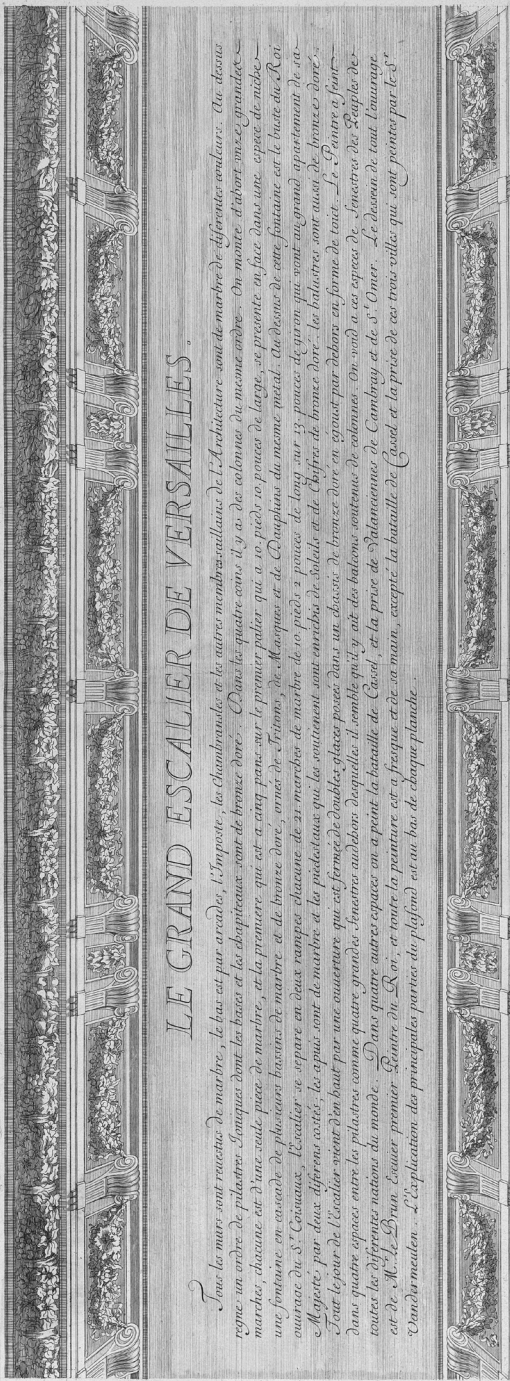 LE GRAND ESCALIER DE VERSAILLES.
Tous les murs sont revestus de marbre, le bas est par arcades, l'Imposte, les Chambransles et les autres membres saillans de l'Architecture sont de marbre de diferentes couleurs. Au dessus
regne un ordre de pilastres Ioniques dont les bases et les chapiteaux sont de bronze doré. Dans les quatre coins il y a des colonnes du mesme ordre. On monte d'abort onze grandes
marches, chacune est d'une seule piece de marbre, et la premiere qui est a cinq pans sur le premier palier qui a 10 pieds 10 pouces de large, se presente en face dans une espece de niche
une fontaine en cascade de plusieurs bassins de marbre et de bronze doré, ornés de Tritons, de Masques et de Dauphins du mesme metal. Au dessus de cette fontaine est le buste du Roi
ouvrage du Sr. Coisvaux, l'Escalier se separe en deux rampes chacune de 21 marches de marbre de 10 pieds 2 pouces de long sur 13 pouces de giron qui vont au grand apartement de sa
Majesté par deux diferens costés; les apuis sont de marbre et les piédestaux qui les soutienent sont enrichis de Soleils et de Chifres de bronze doré. les balustres sont aussi de bronze doré.
Tout le jour de l'Escalier vient d'en haut par une ouverture qui est fermée de doubles glaces posées dans un chassis de bronze doré en egoust par dehors en forme de toict. Le Peintre a feint
dans quatre espaces entre les pilastres comme quatre grandes fenestres audehors desquelles il semble qu'il y ait des balcons soutenus de colonnes. On void a ces especes de fenestres des Peuples de
toutes les diferentes nations du monde. Dans quatre autres espaces on a peint la bataille de Cassel, et la prise de Valanciennes de Cambray et de St Omer. Le dessein de tout l'ouvrage
est de Mr. le Brun Escuier premier Peintre du Roi, et toute la peinture est a fresque et de sa main, excepté la bataille de Cassel et la prise de ces trois villes qui sont peintes par le Sr
Vandermeulen. L'Explication des principales parties du plafond est au bas de chaque planche.